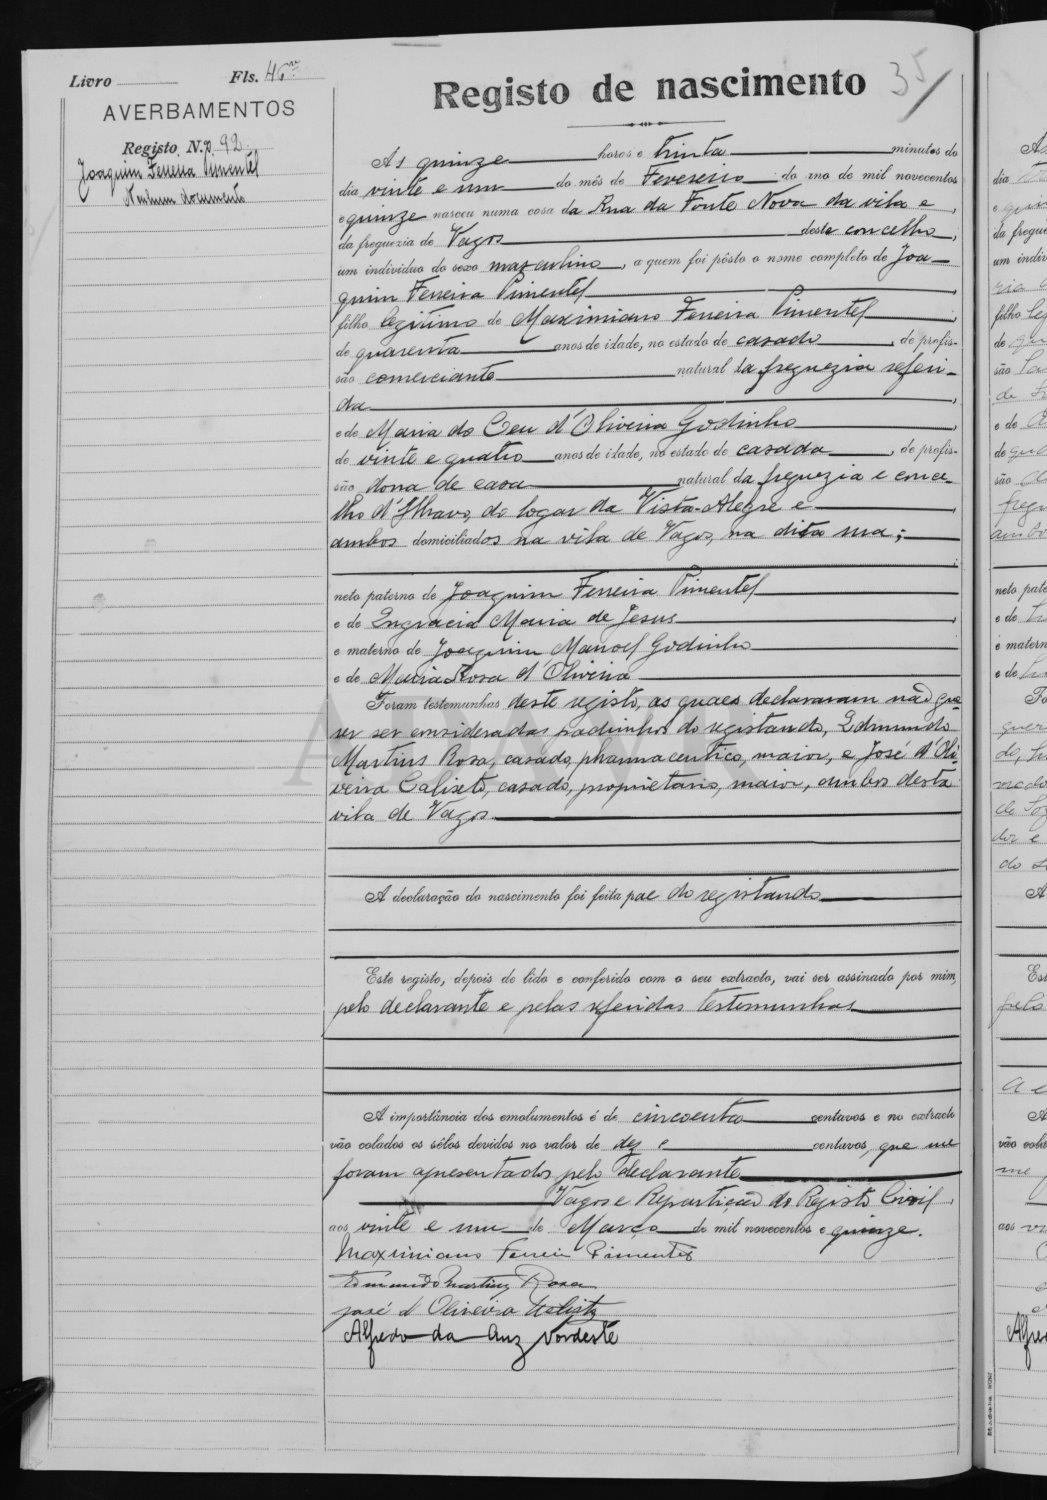 Livro Fls. 46
AVERBAMENTOS
Registo N.º 92
Joaquim Ferreira Pimentel
Nenhum documento
Registo de nascimento
35
Às quinze horas e trinta minutos do
dia vinte e um do mês de Fevereiro do ano de mil novecentos
e quinze nasceu numa casa da Rua da Fonte Nova da vila e
da freguezia de Vagos deste concelho,
um individuo do sexo masculino, a quem foi pôsto o nome completo de Joa-
quim Ferreira Pimentel
filho legitimo de Maximiano Ferreira Pimentel,
de quarenta anos de idade, no estado de casado, de profis-
são comerciante natural da freguezia referi-
da
e de Maria do Ceu d'Oliveira Godinho
de vinte e quatro anos de idade, no estado de casada, de profis-
são dona de casa natural da freguezia e conce-
lho d'Ilhavo, do logar da Vista-Alegre e
ambos domiciliádos na vila de Vagos, na dita rua;
neto paterno de Joaquim Ferreira Pimentel
e de Engracia Maria de Jesus
e materno de Joaquim Manoel Godinho
e de Maria Rosa d'Oliveira
Foram testemunhas deste registo, as quaes declararam não que-
rer ser consideradas padrinhos do registando, Edmundo
Martins Rosa, casado, pharmaceutico, maior, e José d'Oli-
veira Calisto, casado, proprietario, maior, ambos desta
vila de Vagos.
A declaração do nascimento foi feita pae do registando
Este registo, depois de lido e conferido com o seu extracto, vai ser assinado por mim,
pelo declarante e pelas referidas testemunhas
A importância dos emolumentos é de cincoenta centavos e no extracto
vão colados os sêlos devidos no valor de dez e centavos, que me
foram apresentados pelo declarante
Vagos e Repartição do Registo Civil,
aos vinte e um de Março de mil novecentos e quinze.
Maximiano Ferreira Pimentel
Edmundo Martins Rosa
José d'Oliveira Calisto
Alfredo da Cruz Nordeste
ADAV